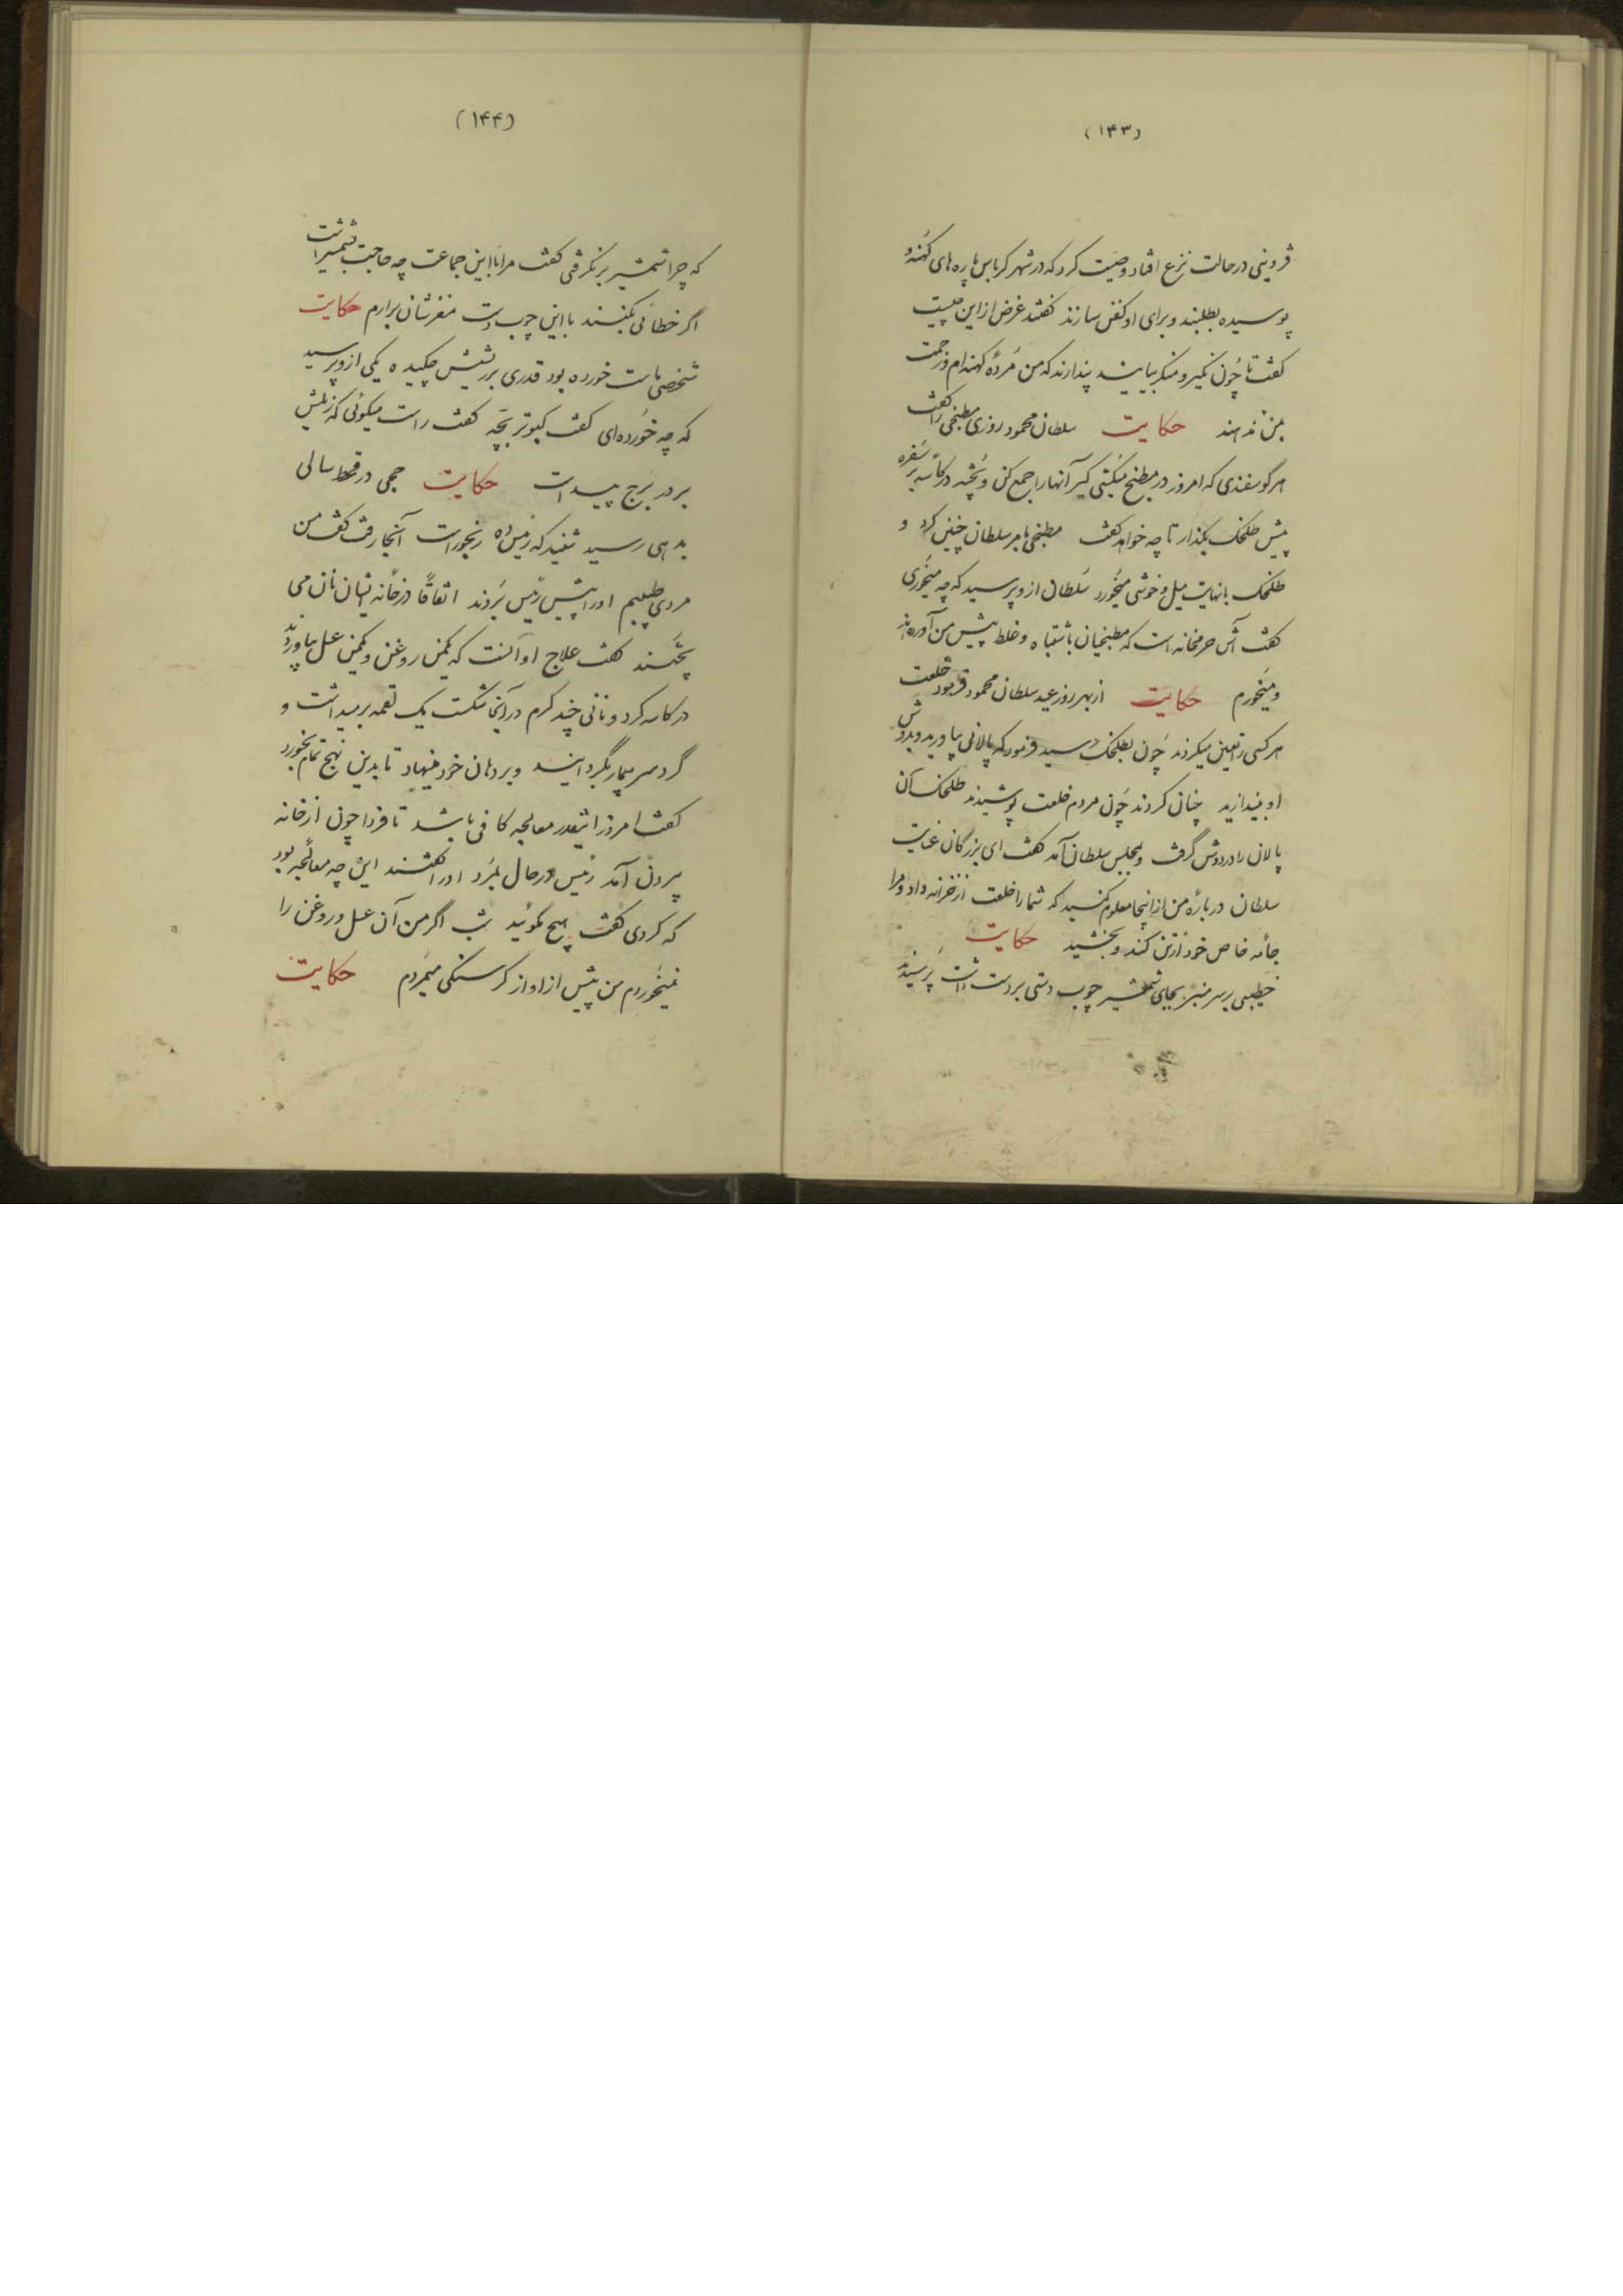 (۱۴۳)
قزوینی در حالت نزع افتاد وصیت کرد که در شهر کرباس پاره های کهنه و
پوسیده بطلبند و برای او کفن سازند گفتند غرض از این چیست
گفت تا چون نکیر و منکر بیایند پندارند که من مرده کهنه ام و زحمت
بمن ندهند حکایت سلطان محمود روزی مطبخی را گفت
هر گوسفندی که امروز در مطبخ میکشی کیر آنها را جمع کن و پخته در کاسه بر سفره
پیش طلخک بگذار تا چه خواهد گفت مطبخی بامر سلطان چنین کرد و
طلخک با نهایت میل و خوشی میخورد سلطان از وپرسید که چه میخوری
گفت آش حرمخانه است که مطبخیان باشتباه و غلط پیش من آورده اند
و میخورم حکایت از بهر روز عید سلطان محمود خلعت
هر کسی را تعیین میکردند چون بطلخک رسید فرمود که پالانی بیاورید و بدوش
او بیندازید چنان کردند چون مردم خلعت پوشیدند طلخک آن
پالان را در دوش گرفت و بمجلس سلطان آمد گفت ای بزرگان عنایت
سلطان درباره من از اینجا معلوم کنید که شما را خلعت از خزانه داد و مرا
جامه خاص خود از تن کند و بخشید حکایت
خطیبی بر سر منبر بجای شمشیر چوب دستی بر دست داشت پرسیدند
(۱۴۴)
که چرا شمشیر بر نگرفتی گفت مرا با این جماعت چه حاجت بشمشیر است
اگر خطائی بکنند با این چوب دست مغزشان برارم حکایت
شخصی ماست خورده بود قدری بر ریشش چکیده یکی از وپرسید
که چه خورده ای گفت کبوتر بچه گفت راست میگوئی که زبلش
بر در برج پیداست حکایت حجی در قحط سالی
بدهی رسید شنید که رئیس ده رنجور است آنجا رفت گفت من
مردی طبیبم او را پیش رئیس بردند اتفاقاً در خانه ایشان نان می
پختند گفت علاج او آنست که یکمن روغن و یکمن عسل بیاورند
در کاسه کرد و نانی چند گرم در آنجا شکست یک لقمه بر میداشت و
گرد سر بیمار بگردانید و بر دهان خود مینهاد تا بدین نهج تمام بخورد
گفت امروز اینقدر معالجه کافی باشد تا فردا چون از خانه
بیرون آمد رئیس در حال بمرد او را گفتند این چه معالجه بود
که کردی گفت هیچ مگوئید شب اگر من آن عسل و روغن را
نمیخوردم من پیش از او از گرسنگی میمردم حکایت